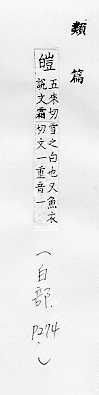 類篇
皚
五來切雪之白也又魚衣
說文霜切文一重音一
(白部 P274.)